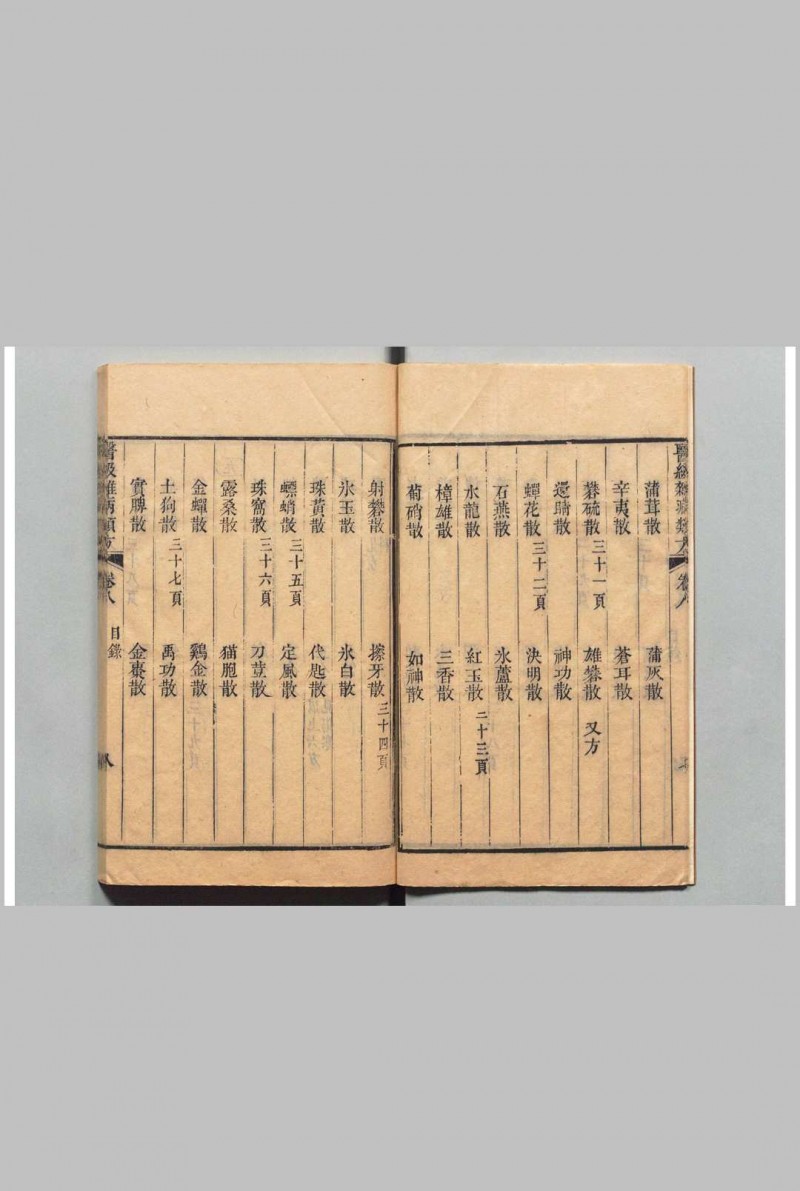 醫級雜病類方 卷八
蒲茸散 蒲灰散
辛夷散 蒼耳散
礬硫散 三十一頁 雄礬散 又方
還睛散 神功散
蟬花散 三十二頁 決明散
石燕散 氷蘆散
水龍散 紅玉散 三十三頁
樟雄散 三香散
蔔硝散 如神散
射礬散 擦牙散 三十四頁
氷玉散 氷白散
珠黃散 代匙散
螵蛸散 三十五頁 定風散
珠窩散 三十六頁 刀荳散
露桑散 猫胞散
金蟬散 鷄金散
土狗散 三十七頁 禹功散
實脾散 金棗散
醫級雜病類方 卷八 目錄 八